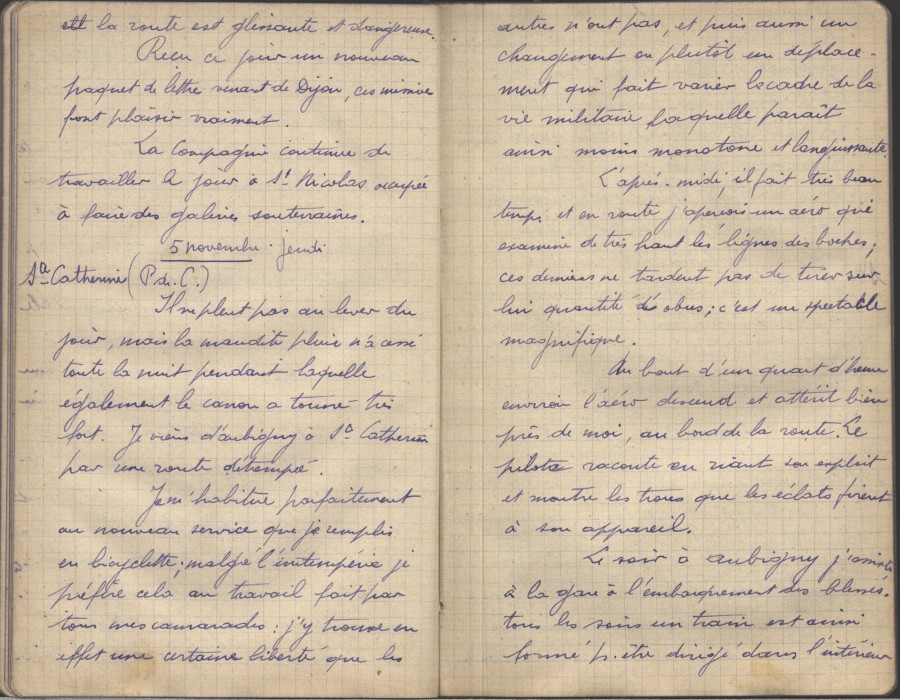 et la route est glissante et dangereuse.
Reçu ce jour un nouveau
paquet de lettre venant de Dijon, ces missives
font plaisir vraiment.
La Compagnie continue de
travailler le jour à St Nicolas occupée
à faire des galeries souterraines.
5 novembre. jeudi
Ste Catherine (P. de. C.)
Il ne pleut pas au lever du
jour, mais la maudite pluie n'a cessé
toute la nuit pendant laquelle
également le canon a tonné très
fort. Je viens d'aubigny à Ste Catherine
par une route détrempée.
Je m'habitue parfaitement
au nouveau service que je remplis
en bicyclette; malgré l'intempérie je
préfère cela au travail fait par
tous mes camarades: j'y trouve en
effet une certaine liberté que les
autres n'ont pas, et puis aussi un
changement ou plutôt un déplace-
ment qui fait varier le cadre de la
vie militaire laquelle paraît
ainsi moins monotone et languissante.
L'après-midi, il fait très beau
temps et en route j'aperçois un aéro qui
examine de très haut les lignes des boches;
ces derniers ne tardent pas de tirer sur
lui quantité d'obus; c'est un spectacle
magnifique.
Au bout d'un quart d'heure
environ l'aéro descend et attérit bien
près de moi, au bord de la route. Le
pilote raconte en riant son exploit
et montre les trous que les éclats firent
à son appareil.
Le soir à aubigny j'assiste
à la gare à l'embarquement des blessés.
tous les soirs un train est ainsi
formé p. être dirigé dans l'intérieur